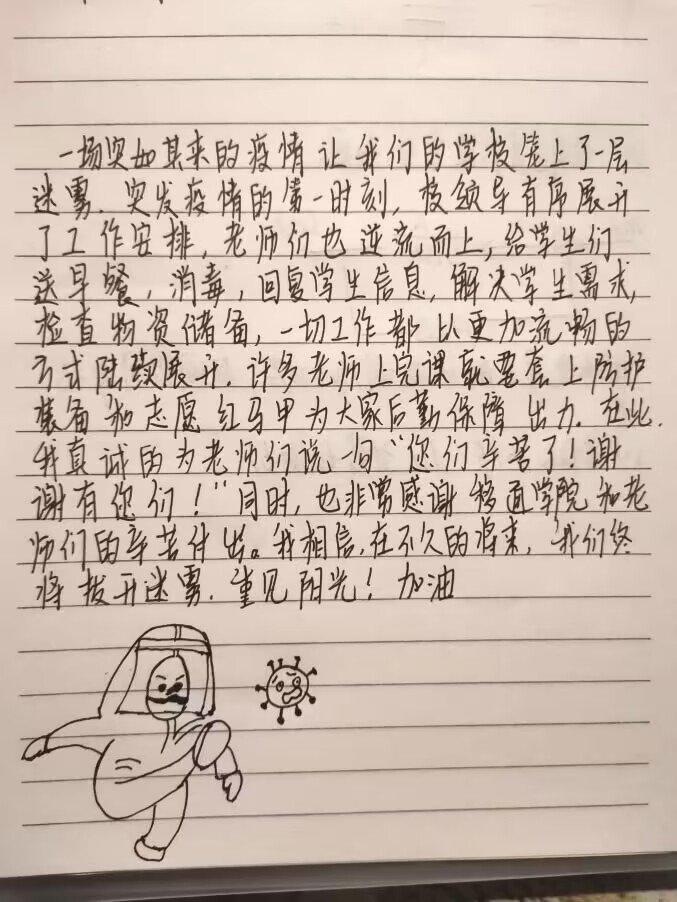 一场突如其来的疫情让我们的学校笼上了一层
迷雾.突发疫情的第一时刻,校领导有序展开
了工作安排,老师们也逆流而上,给学生们
送早餐,消毒,回复学生信息,解决学生需求,
检查物资储备,一切工作都以更加流畅的
方式陆续展开.许多老师上完课就要套上防护
装备和志愿红马甲为大家后勤保障出力.在此,
我真诚的为老师们说一句“您们辛苦了!谢
谢有你们!”同时,也非常感谢移通学院和老
师们的辛苦付出。我相信,在不久的将来,我们终
将拨开迷雾.重见阳光!加油